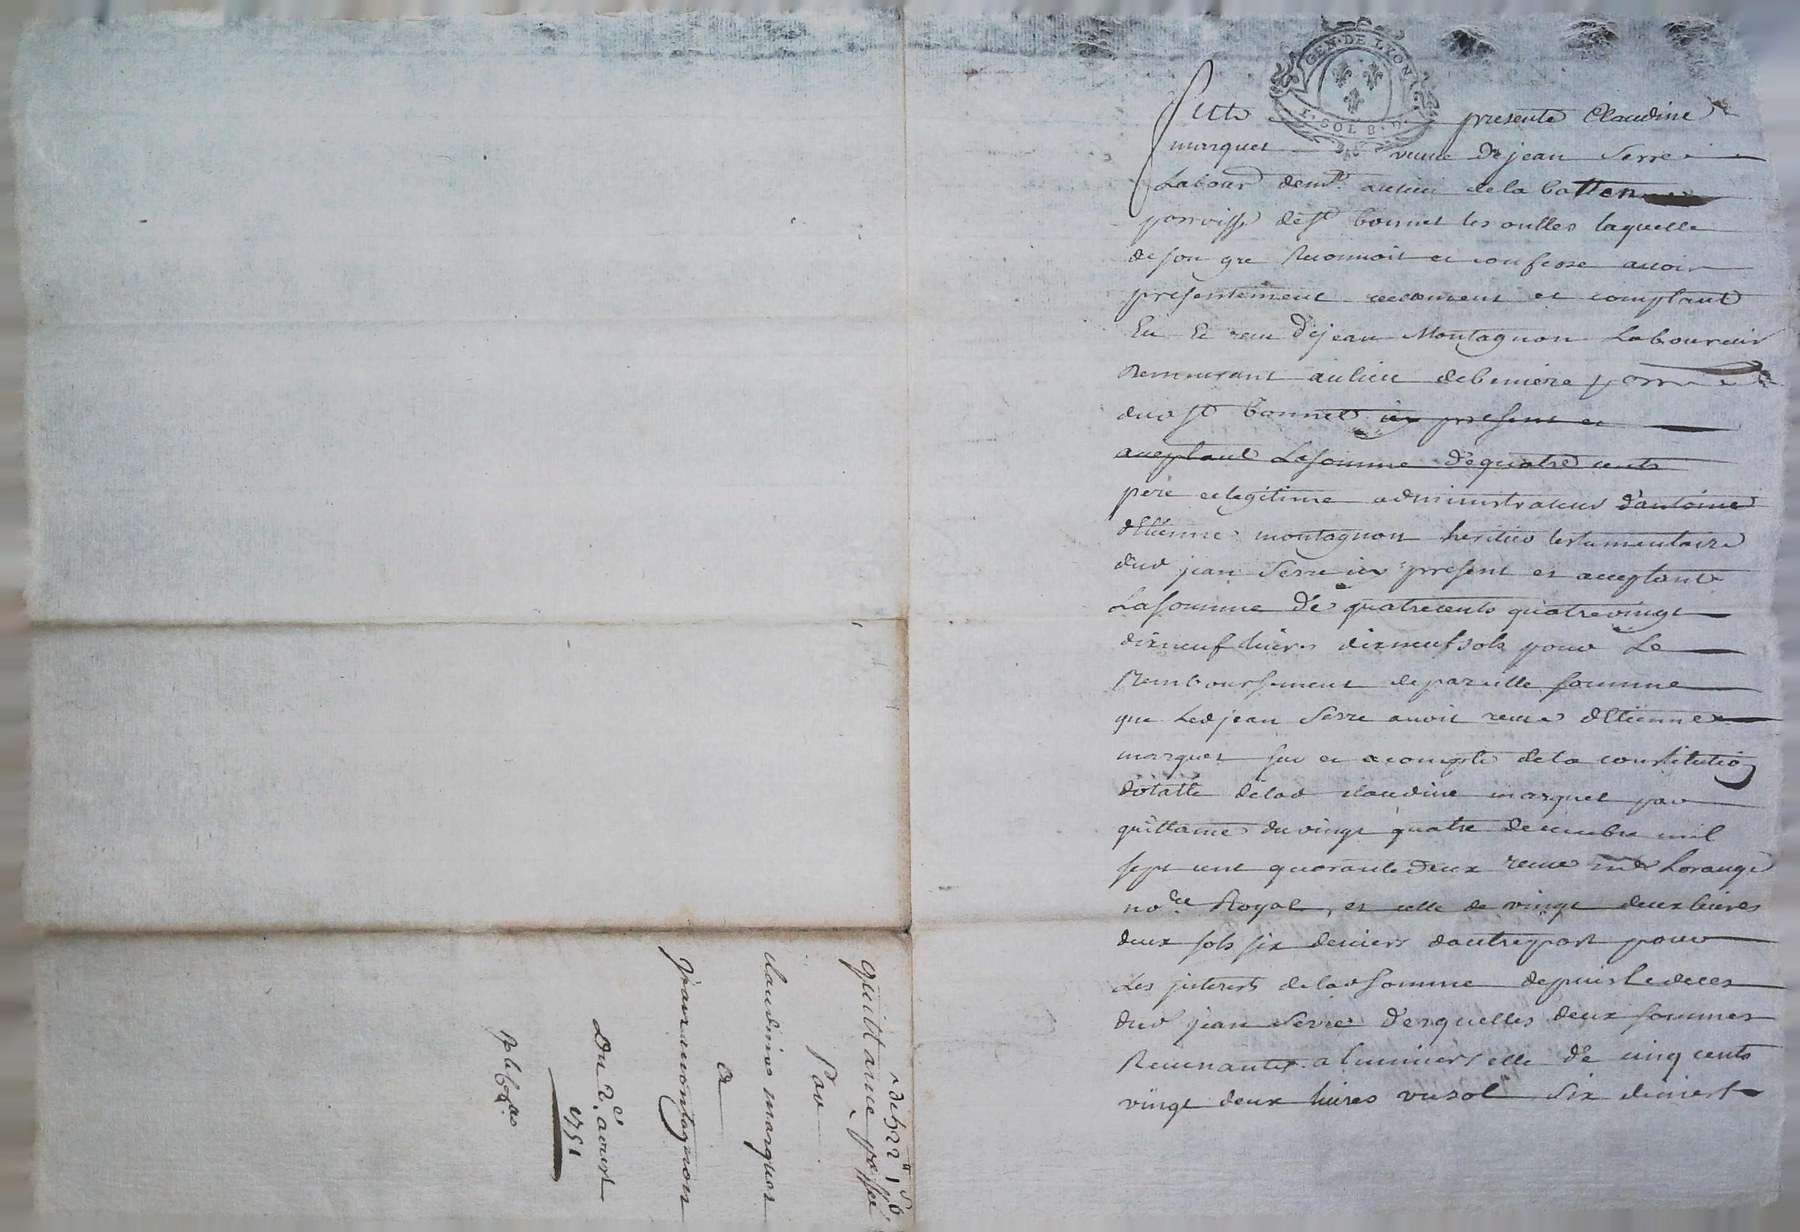 GEN. DE LYON
1. SOL 8. D.
fut presente Claudine
marquet veuve de jean Serre
Labour demt. au lieu de la batten
parroisse de st bonnet les oulles laquelle
de son gre Reconnoit et confesse avoir
presentement reelement et comptant
Eu Et recu de jean Montagnon Laboureur
Demeurant au lieu de
dud st bonnet icy present et
acceptant La somme de quatre cents
pere et legitime administrateur d'antoine
d'Etienne montagnon heritier testamentaire
dud jean Serre icy present et acceptant
La somme de quatrecents quatrevingt
dixneuf livres dixneuf sols pour Le
Remboursement de pareille somme
que Led jean Serre avoit recue d'Etienne
marquet sur et acompte de la constitution
dotalle delad claudine marquet par
quittance du vingt quatre decembre mil
sept cent quarante deux recue me Lorange
nore Royal, et celle de vingt deux livres
deux sols six deniers d'autre part pour
Les jnterests de lad somme depuis le deces
dud jean Serre desquelles deux sommes
Revenantes a celle de cinq cents
vingt deux livres un sol six deniers
de 522 tt 1 s 6 d
quittance passée
Par
claudine marquet
a
jean montagnon
Du 2e. avril
1751